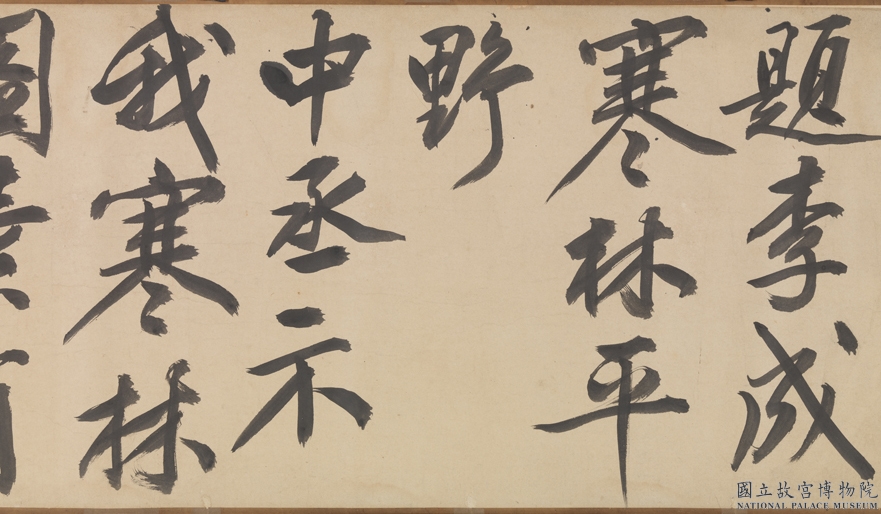 題李成
寒林平
野
中丞示
我寒林
圖
國立故宮博物院
NATIONAL PALACE MUSEUM